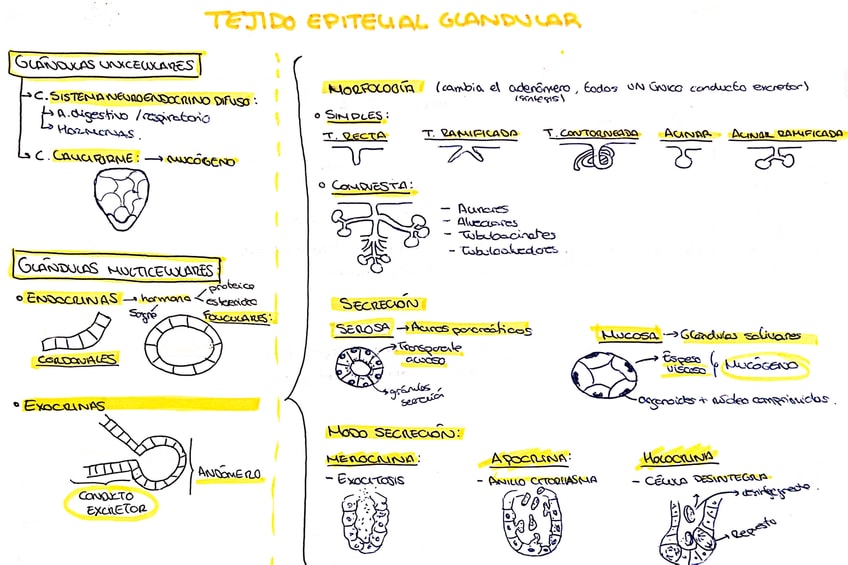 TEJIDO EPITELIAL GLANDULAR
GLÁNDULAS UNICELULARES
C. SISTEMA NEUROENDOCRINO DIFUSO:
A. digestivo / respiratorio
HORMONAS.
C. CALICIFORME: → MUCÓGENO
GLÁNDULAS MULTICELULARES
ENDOCRINAS → hormona
proteica
esteroidea
Sangre
FOLICULARES:
CORDONALES
EXOCRINAS
ADNÓMERO
CONDUCTO
EXCRETOR
MORFOLOGÍA (cambia el adenómero, todas UN único conducto excretor)
(síntesis)
SIMPLES:
T. RECTA
T. RAMIFICADA
T. CONTORNEADA
ACINAR
ACINAR RAMIFICADA
COMPUESTA:
- Acinares
- Alveolares
- Tubuloacinares
- Tubuloalveolares.
SECRECIÓN
SEROSA → Acinos pancreáticos
Transparente
acuoso
gránulos
secreción
MUCOSA → Glándulas salivares
Espeso
viscoso
MUCÓGENO
organoides + núcleo comprimidos.
MODO SECRECIÓN:
MEROCRINA:
- EXOCITOSIS
APOCRINA:
- ANILLO CITOPLASMA
HOLOCRINA
- CÉLULA DESINTEGRA
Repuesto